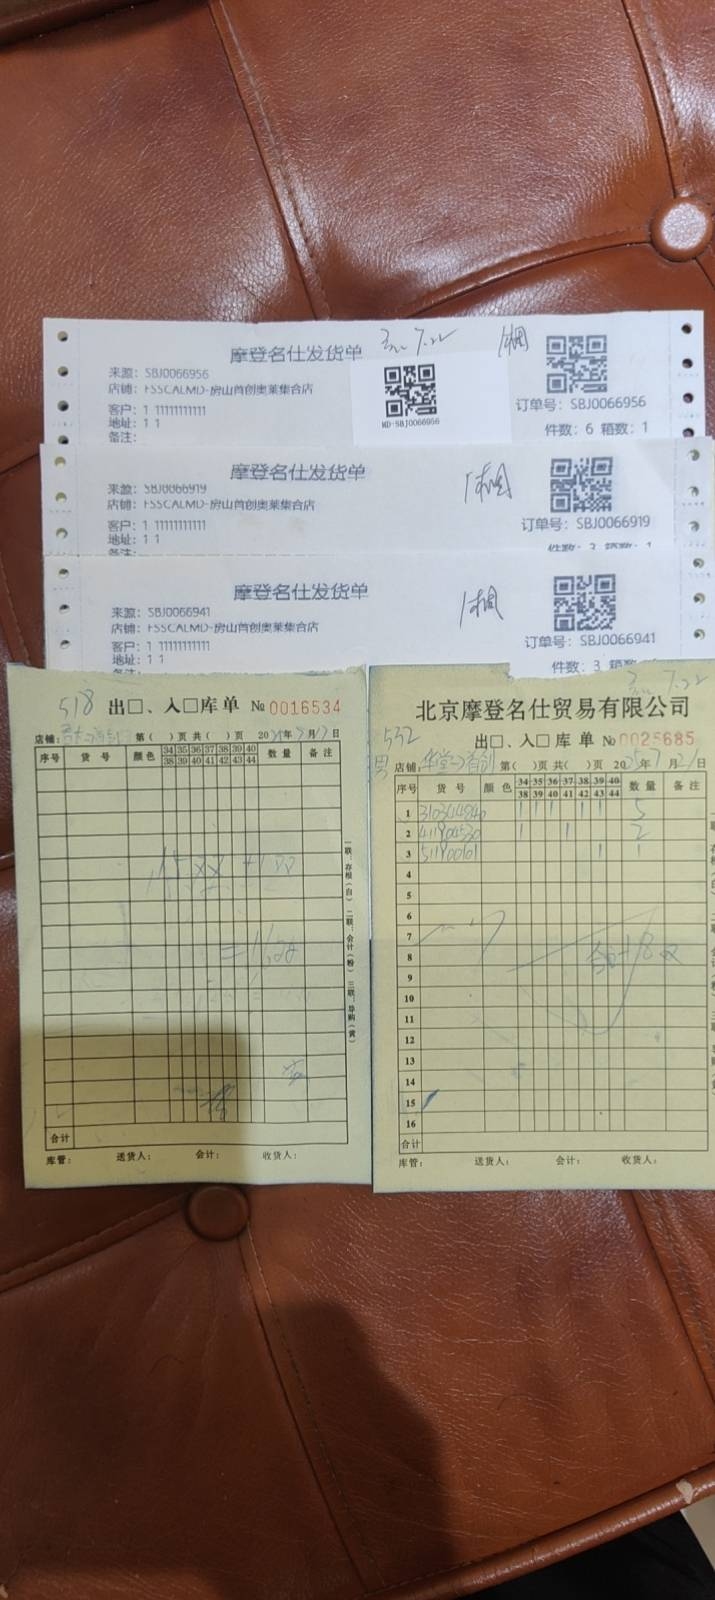 摩登名仕发货单
7.22
1捆
来源: SBJ0066956
店铺: FSSCALMD-房山首创奥莱集合店
MD-SBJ0066956
订单号: SBJ0066956
客户: 1 11111111111
地址: 1 1
备注:
件数: 6 箱数: 1
摩登名仕发货单
1捆
来源: SBJ0066919
店铺: FSSCALMD-房山首创奥莱集合店
订单号: SBJ0066919
客户: 1 11111111111
地址: 1 1
备注:
件数: 3 箱数: 1
摩登名仕发货单
1捆
来源: SBJ0066941
店铺: FSSCALMD-房山首创奥莱集合店
订单号: SBJ0066941
客户: 1 11111111111
地址: 1 1
件数: 3 箱数:
518 出□、入□库单 № 0016534
店铺: 第( )页 共( )页 20 年 月 日
序号 货号 颜色 34 35 36 37 38 39 40 数量 备注
38 39 40 41 42 43 44
合计
库管: 送货人: 会计: 收货人:
一联:存根(白) 二联:会计(粉) 三联:导购(黄)
7.22
北京摩登名仕贸易有限公司
532 出□、入□库单 № 0025685
男 店铺: 第( )页 共( )页 2025年 月21日
序号 货号 颜色 34 35 36 37 38 39 40 数量 备注
38 39 40 41 42 43 44
1 5
2 411904530 1 1 2
3 511900101 1 1
4
5
6
7
8
9
10
11
12
13
14
15
16
合计
库管: 送货人: 会计: 收货人: